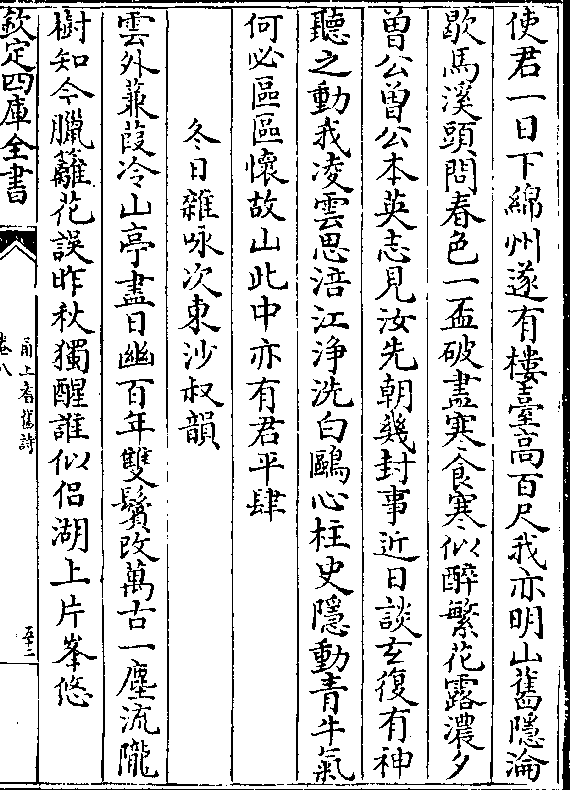 使君一日下綿州遂有樓臺髙百尺我亦明山舊隱淪
歇馬溪頭問春色一盃破盡寒食寒似醉繁花露濃夕
曽公曽公本英志見汝先朝幾封事近日談𤣥復有神
聽之動我凌雲思涪江浄洗白鷗心柱史隱動青牛氣
何必區區懷故山此中亦有君平肆
冬日雜咏次東沙叔韻
雲外蒹葭冷山亭盡日幽百年雙鬢改萬古一塵流隴
樹知今臘籬花誤昨秋獨醒誰似侣湖上片峯悠
欽定四庫全書
甬上耆舊詩
卷八
至二